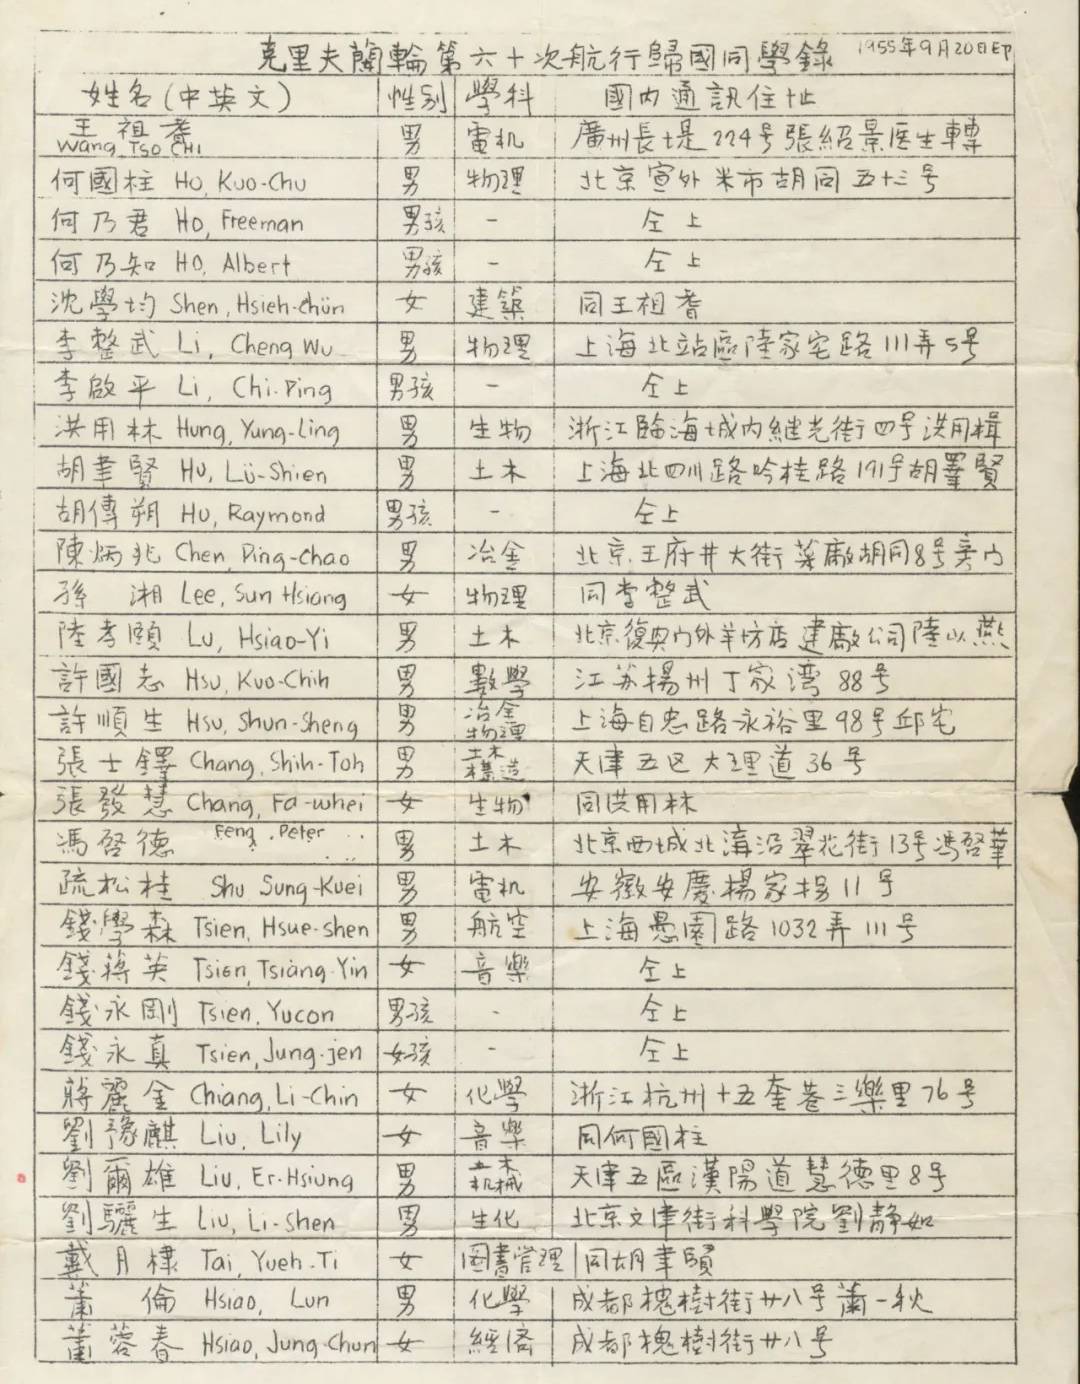 克里夫蘭輪第六十次航行歸國同學錄 1955年9月20日印
姓名(中英文) 性別 學科 國內通訊住址
王祖耆 Wang, Tso CHI 男 電机 廣州長堤224号張紹景医生轉
何國柱 Ho, Kuo-Chu 男 物理 北京宣外米市胡同五十三号
何乃君 Ho, Freeman 男孩 - 仝上
何乃知 HO, Albert 男孩 - 仝上
沈學均 Shen, Hsieh-chün 女 建築 同王祖耆
李整武 Li, Cheng Wu 男 物理 上海北站區陸家宅路111弄5号
李啟平 Li, Chi-Ping 男孩 - 仝上
洪用林 Hung, Yung-Ling 男 生物 浙江臨海城內继光街四号洪用楫
胡聿賢 Hu, Lü-Shien 男 土木 上海北四川路吟桂路191号胡睪賢
胡傳朔 Hu, Raymond 男孩 - 仝上
陳炳兆 Chen, Ping-chao 男 冶金 北京王府井大街菜廠胡同8号旁门
孫湘 Lee, Sun Hsiang 女 物理 同李整武
陸孝頤 Lu, Hsiao-Yi 男 土木 北京復興门外羊坊店建廠公司陸以燕
許國志 Hsu, Kuo-Chih 男 數學 江苏揚州丁家湾88号
許順生 Hsu, Shun-Sheng 男 冶金物理 上海自忠路永裕里98号邱宅
張士鐸 Chang, Shih-Toh 男 土木構造 天津五区大理道36号
張發慧 Chang, Fa-whei 女 生物 同洪用林
馮啓德 Feng, Peter 男 土木 北京西城北海沿翠花街13号馮啓華
疏松桂 Shu Sung-Kuei 男 電机 安徽安慶楊家拐11号
錢學森 Tsien, Hsue-shen 男 航空 上海愚園路1032弄111号
錢蔣英 Tsien, Tsiang-Yin 女 音樂 仝上
錢永剛 Tsien, Yucon 男孩 - 仝上
錢永真 Tsien, Jung-jen 女孩 - 仝上
蔣麗金 Chiang, Li-Chin 女 化學 浙江杭州十五奎巷三樂里76号
劉豫麒 Liu, Lily 女 音樂 同何國柱
劉爾雄 Liu, Er-Hsiung 男 土木机械 天津五區漢陽道慧德里8号
劉驪生 Liu, Li-shen 男 生化 北京文津街科學院劉靜如
戴月棣 Tai, Yueh-Ti 女 圖書管理 同胡聿賢
蕭倫 Hsiao, Lun 男 化學 成都槐樹街廿八号蕭一秋
蕭蓉春 Hsiao, Jung-Chun 女 經濟 成都槐樹街廿八号